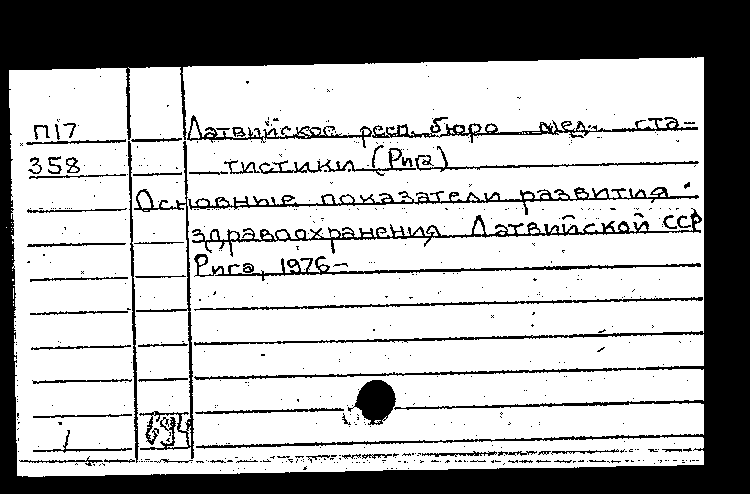 П17 Латвийское респ. бюро мед. ста-
358 тистики (Рига)
Основные показатели развития
здравоохранения Латвийской ССР
Рига, 1976-
1 694